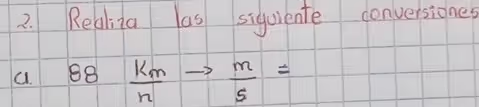 2. Realiza las siguiente conversiones
a. 88 Km/h → m/s =